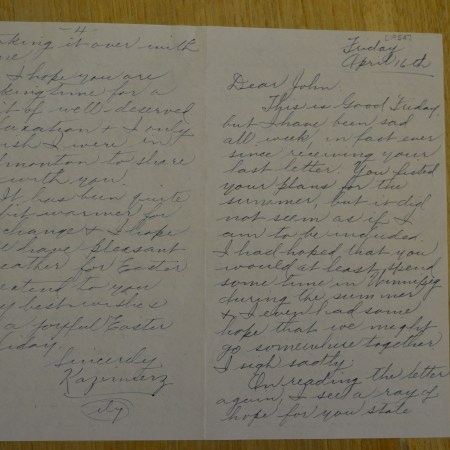 -4-
aking it over with
I hope you are
king time for a
it of well-deserved
axation & I only
ish I were in
monton to share
with you.
It has been quite
bit warmer for
change & I hope
e have pleasant
eather for Easter
xtend to you
y best wishes
a joyful Easter
liday.
Sincerely
Kazimierz
Friday
April 16th
Dear John
This is Good Friday,
but I have been sad
all week, in fact ever
since receiving your
last letter. You listed
your plans for the
summer, but it did
not seem as if I
am to be included.
I had hoped that you
would at least spend
some time in Winnipeg
during the summer
& I even had some
hope that we might
go somewhere together
I sigh sadly.
On reading the letter
again, I see a ray of
hope for you state